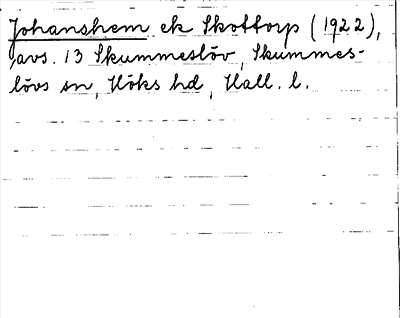 Johanshem ek Skottorp (1922),
avs. 13 Skummeslöv, Skummes-
lövs sn, Höks hd, Hall. l.